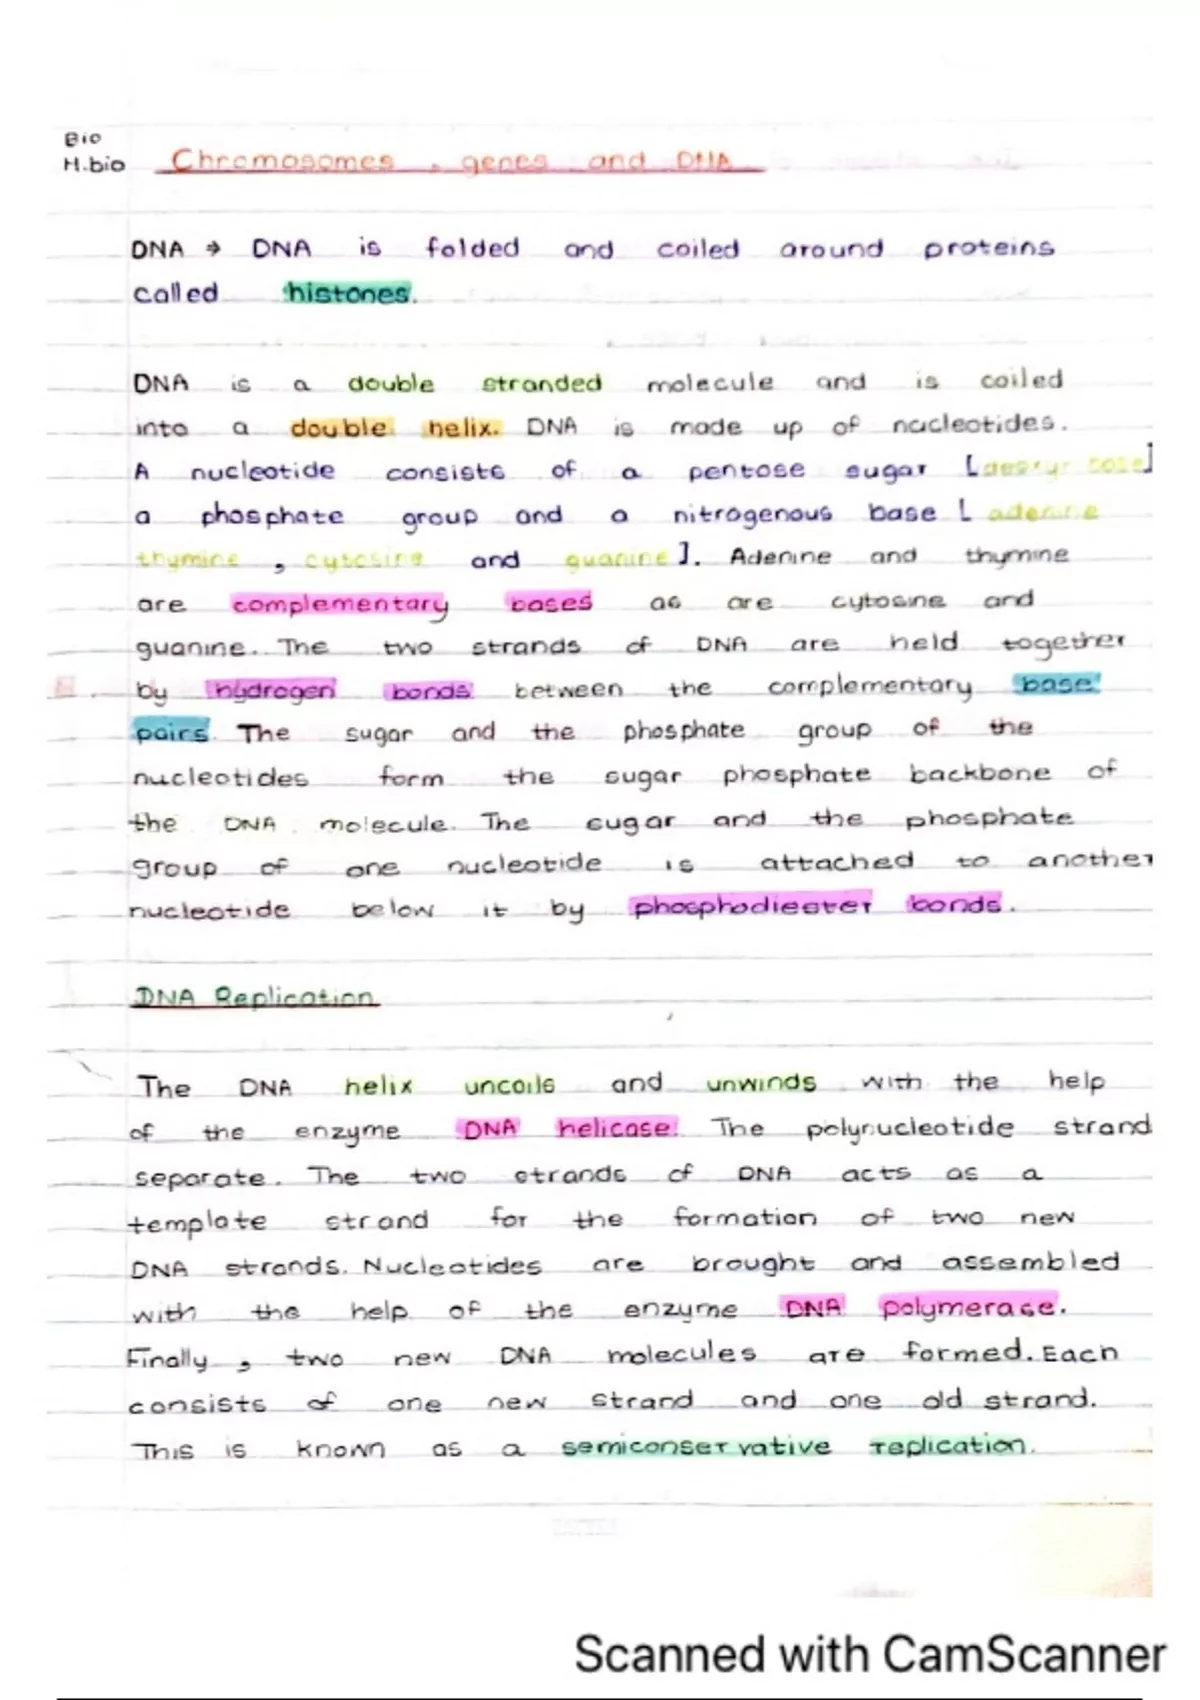 Bio
H.bio
Chromosomes, genes and DNA
DNA → DNA is folded and coiled around proteins
called histones.
DNA is a double stranded molecule and is coiled
into a double helix. DNA is made up of nucleotides.
A nucleotide consists of a pentose sugar [
a phosphate group and a nitrogenous base [ adenine
thymine, cytosine and guanine]. Adenine and thymine
are complementary bases as are cytosine and
guanine. The two strands of DNA are held together
by hydrogen bonds between the complementary base
pairs. The sugar and the phosphate group of the
nucleotides form the sugar phosphate backbone of
the DNA molecule. The sugar and the phosphate
group of one nucleotide is attached to another
nucleotide below it by phosphodiester bonds.
DNA Replication
The DNA helix uncoils and unwinds with the help
of the enzyme DNA helicase. The polynucleotide strand
separate. The two strands of DNA acts as a
template strand for the formation of two new
DNA strands. Nucleotides are brought and assembled
with the help of the enzyme DNA polymerase.
Finally, two new DNA molecules are formed. Each
consists of one new strand and one old strand.
This is known as a semiconservative replication.
Scanned with CamScanner